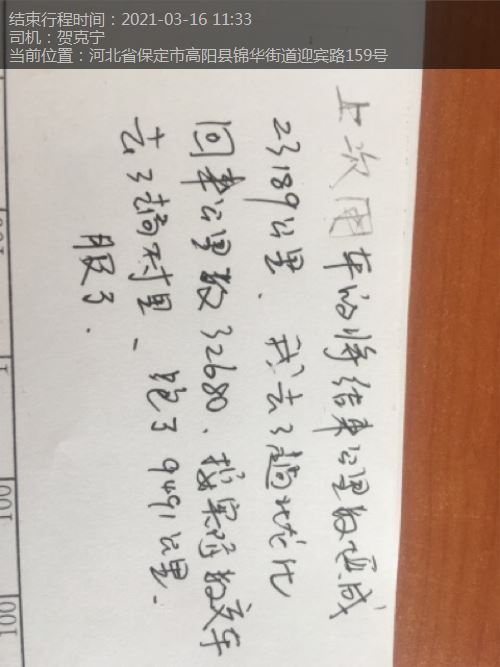 结束行程时间：2021-03-16 11:33
司机：贺克宁
当前位置：河北省保定市高阳县锦华街道迎宾路159号
上次用车的将结束公里数成
23189公里、我去了趟
回来公里数32680、按实际数交车
去了趟村里、跑了9491公里.
服了.
100
100